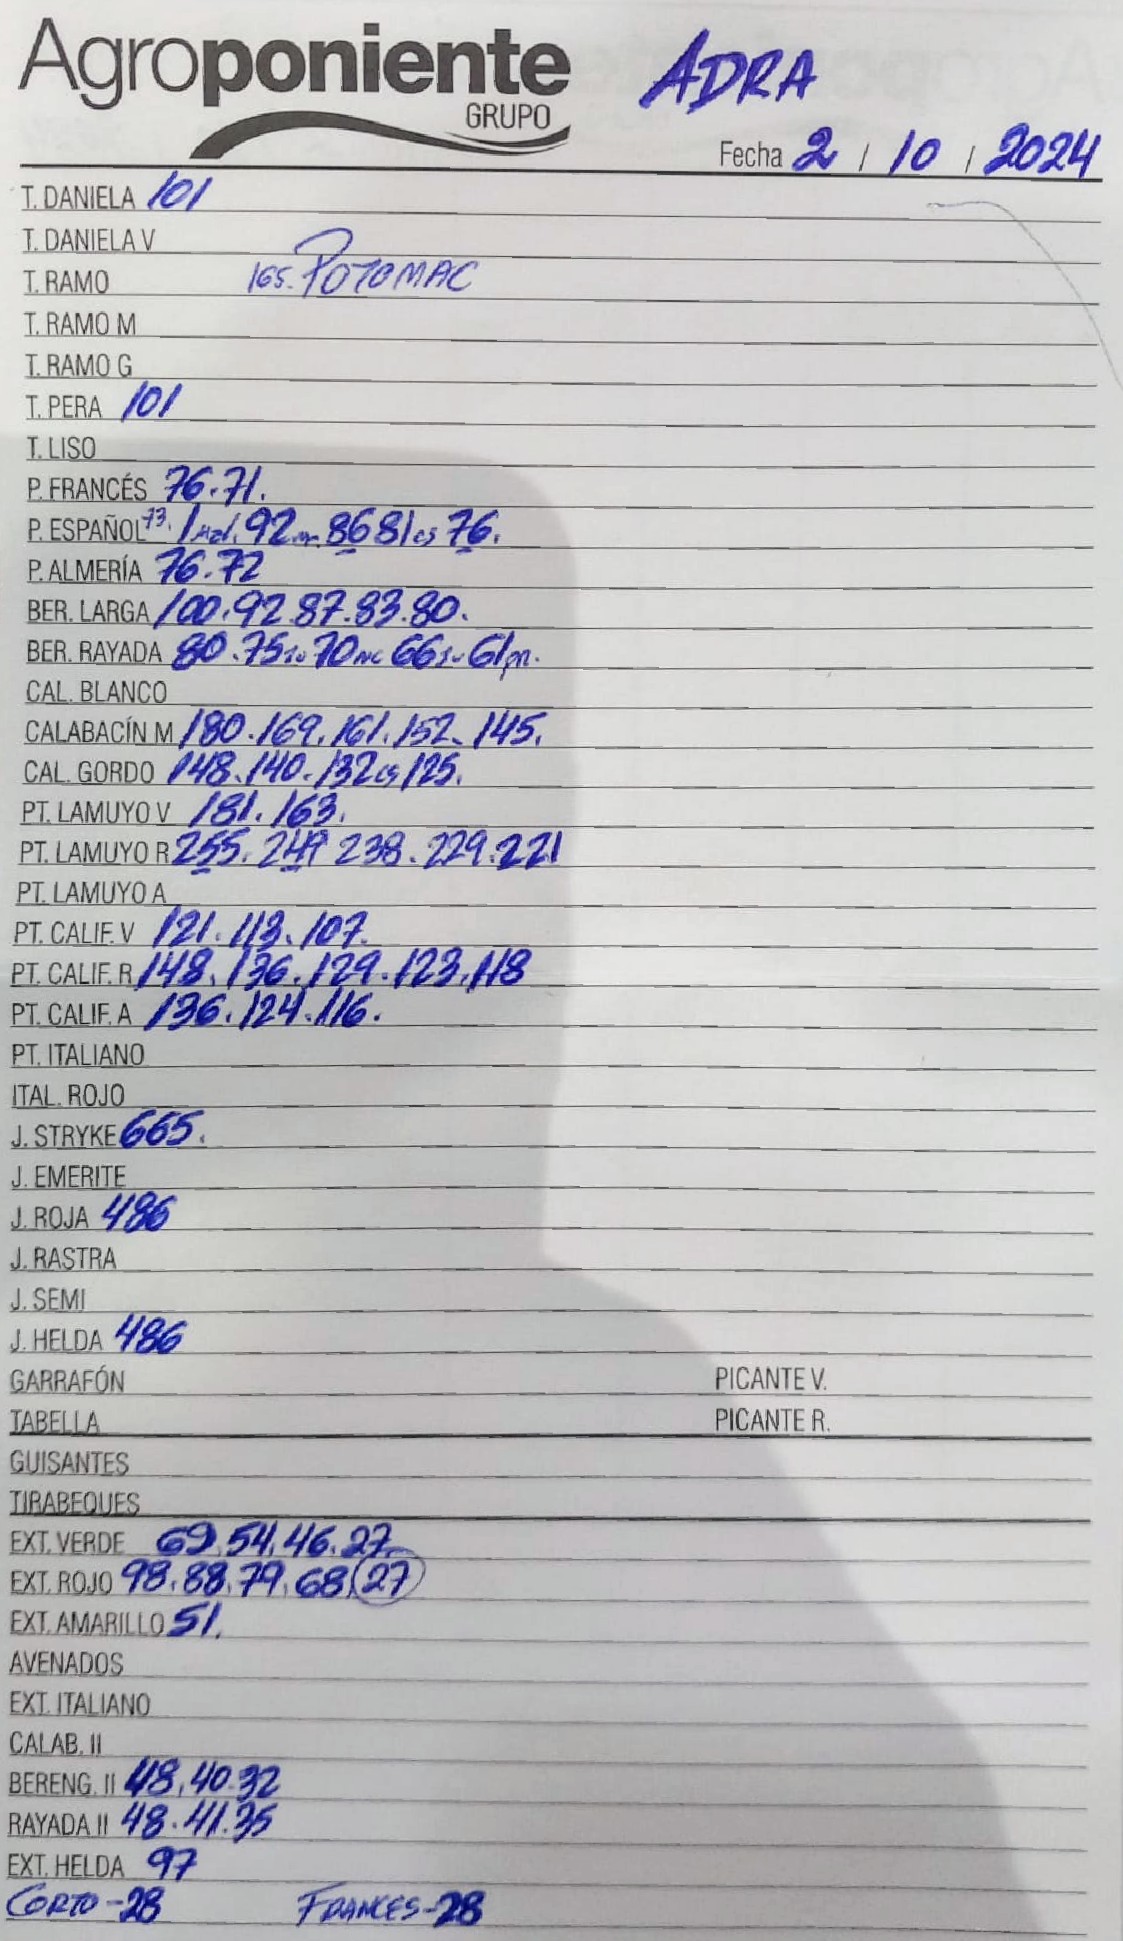 Agroponiente
GRUPO
ADRA
Fecha 2 / 10 / 2024
T. DANIELA 101
T. DANIELA V
T. RAMO 165. POTOMAC
T. RAMO M
T. RAMO G
T. PERA 101
T. LISO
P. FRANCÉS 76.71.
P. ESPAÑOL 73. 92 86 81 cs 76.
P. ALMERÍA 76.72
BER. LARGA 100.92.87.83.80.
BER. RAYADA 80.75 70 66 61
CAL. BLANCO
CALABACÍN M 180.169.161.152.145.
CAL. GORDO 148.140.132 cs 125.
PT. LAMUYO V 181.163.
PT. LAMUYO R 255. 249 238.229.221
PT. LAMUYO A
PT. CALIF. V 121.113.107.
PT. CALIF. R 148.136.129.123.118
PT. CALIF. A 136.124.116.
PT. ITALIANO
ITAL. ROJO
J. STRYKE 665.
J. EMERITE
J. ROJA 486
J. RASTRA
J. SEMI
J. HELDA 486
GARRAFÓN PICANTE V.
TABELLA PICANTE R.
GUISANTES
TIRABEQUES
EXT. VERDE 69.54.46.27
EXT. ROJO 98.88.79.68 (27)
EXT. AMARILLO 51.
AVENADOS
EXT. ITALIANO
CALAB. II
BERENG. II 48.40.32
RAYADA II 48.41.35
EXT. HELDA 97
CORTO-28 FRANCES-28